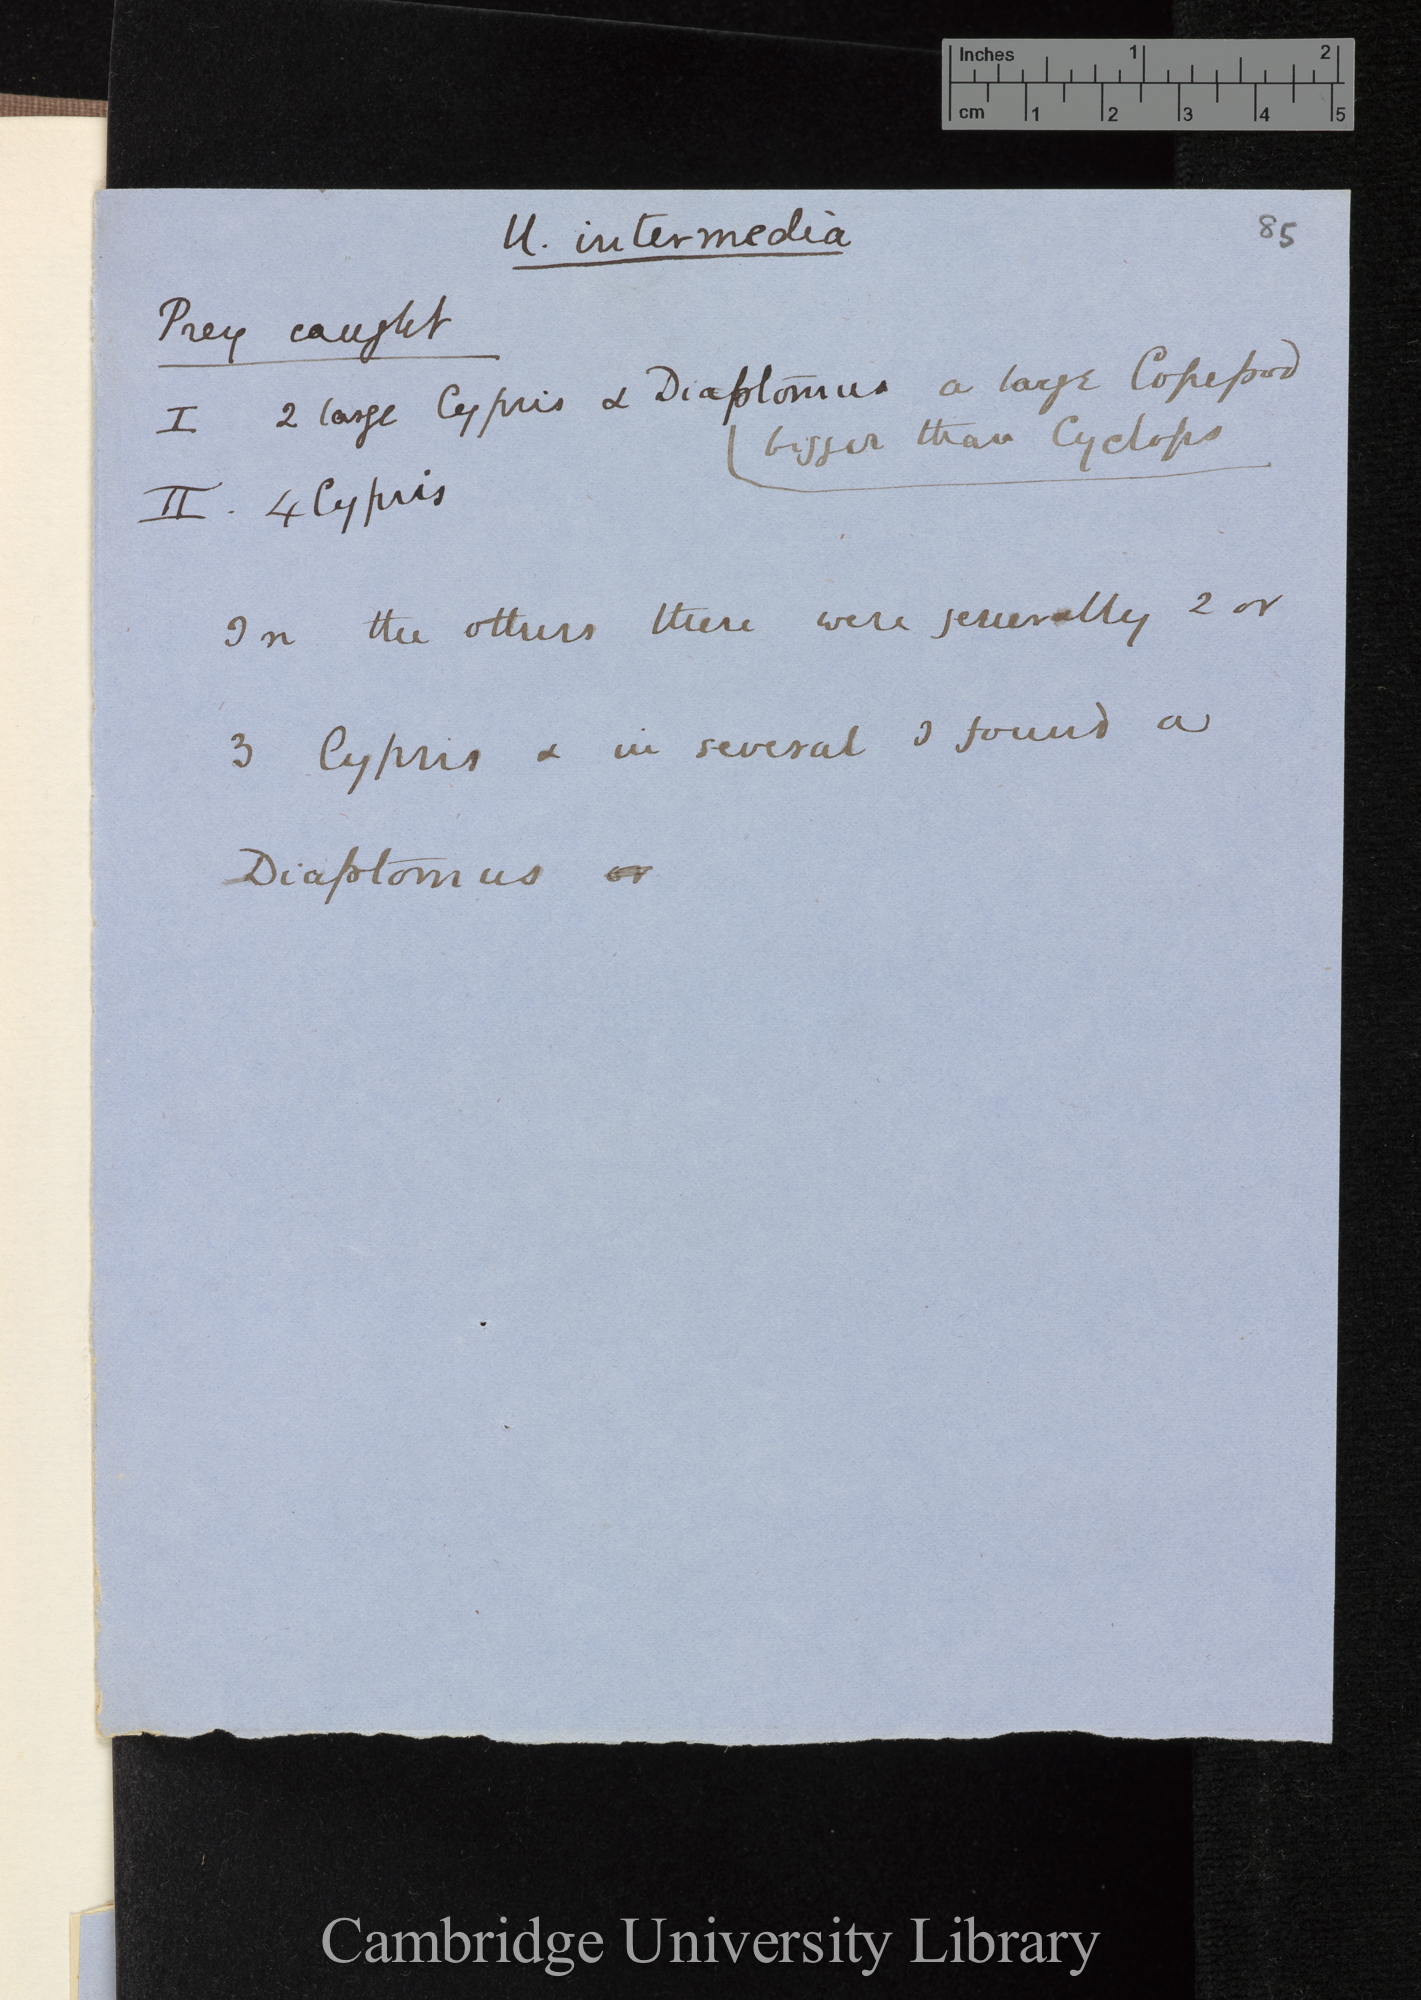 Inches 1 2
cm 1 2 3 4 5
U. intermedia
85
Prey caught
I 2 large Cypris & Diaptomus a large Copepod
bigger than Cyclops
II. 4 Cypris
In the others there were generally 2 or
3 Cypris & in several I found a
Diaptomus or
Cambridge University Library